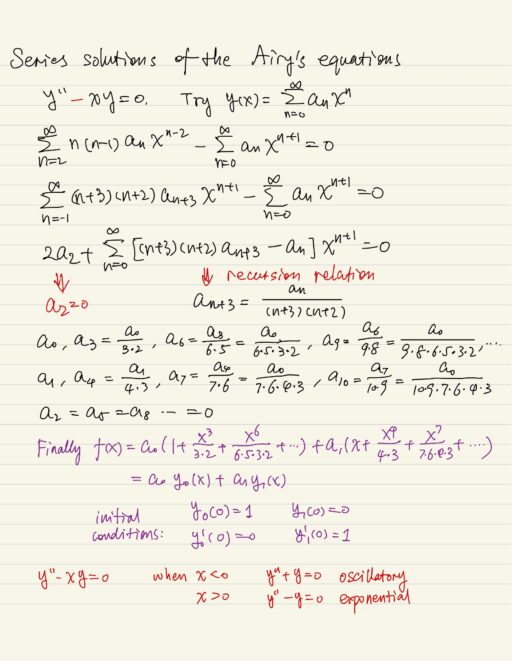 Series solutions of the Airy's equations
y'' - xy = 0. Try y(x) = ∑_{n=0}^{∞} a_n x^n
∑_{n=2}^{∞} n(n-1) a_n x^{n-2} - ∑_{n=0}^{∞} a_n x^{n+1} = 0
∑_{n=-1}^{∞} (n+3)(n+2) a_{n+3} x^{n+1} - ∑_{n=0}^{∞} a_n x^{n+1} = 0
2a_2 + ∑_{n=0}^{∞} [(n+3)(n+2) a_{n+3} - a_n] x^{n+1} = 0
⇓ ⇓ recursion relation
a_2=0 a_{n+3} = a_n/((n+3)(n+2))
a_0, a_3 = a_0/(3·2), a_6 = a_3/(6·5) = a_0/(6·5·3·2), a_9 = a_6/(9·8) = a_0/(9·8·6·5·3·2), ...
a_1, a_4 = a_1/(4·3), a_7 = a_4/(7·6) = a_0/(7·6·4·3), a_10 = a_7/(10·9) = a_0/(10·9·7·6·4·3)
a_2 = a_5 = a_8 ... = 0
Finally f(x) = a_0(1 + x^3/(3·2) + x^6/(6·5·3·2) + ...) + a_1(x + x^4/(4·3) + x^7/(7·6·4·3) + ....)
= a_0 y_0(x) + a_1 y_1(x)
initial y_0(0) = 1 y_1(0) = 0
conditions: y_0'(0) = 0 y_1'(0) = 1
y'' - xy = 0 when x<0 y'' + y = 0 oscillatory
x>0 y'' - y = 0 exponential